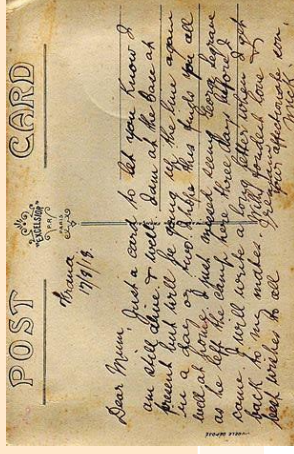 POST CARD
"EXCELSIOR"
PARIS
17/8/18
Dear Mum, Just a card to let you know I
am still alive & well. Down at the base at
present but will be going up the line again
in a day or two. I hope this finds you all
well at home. I just missed seeing George
as he left the camp here three days before I
came. I will write a long letter when I get
back to my mates. With fondest love &
best wishes to all I remain
your affectionate son